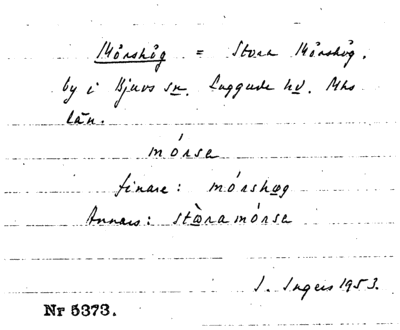 Mörshög = Stora Mörshög,
by i Bjuvs sn. Luggude hd. Mhs
län.
mórse
finare: mórshøg
Annars: stɷ̀ra mórse
I. Ingers 1953.
Nr 5373.